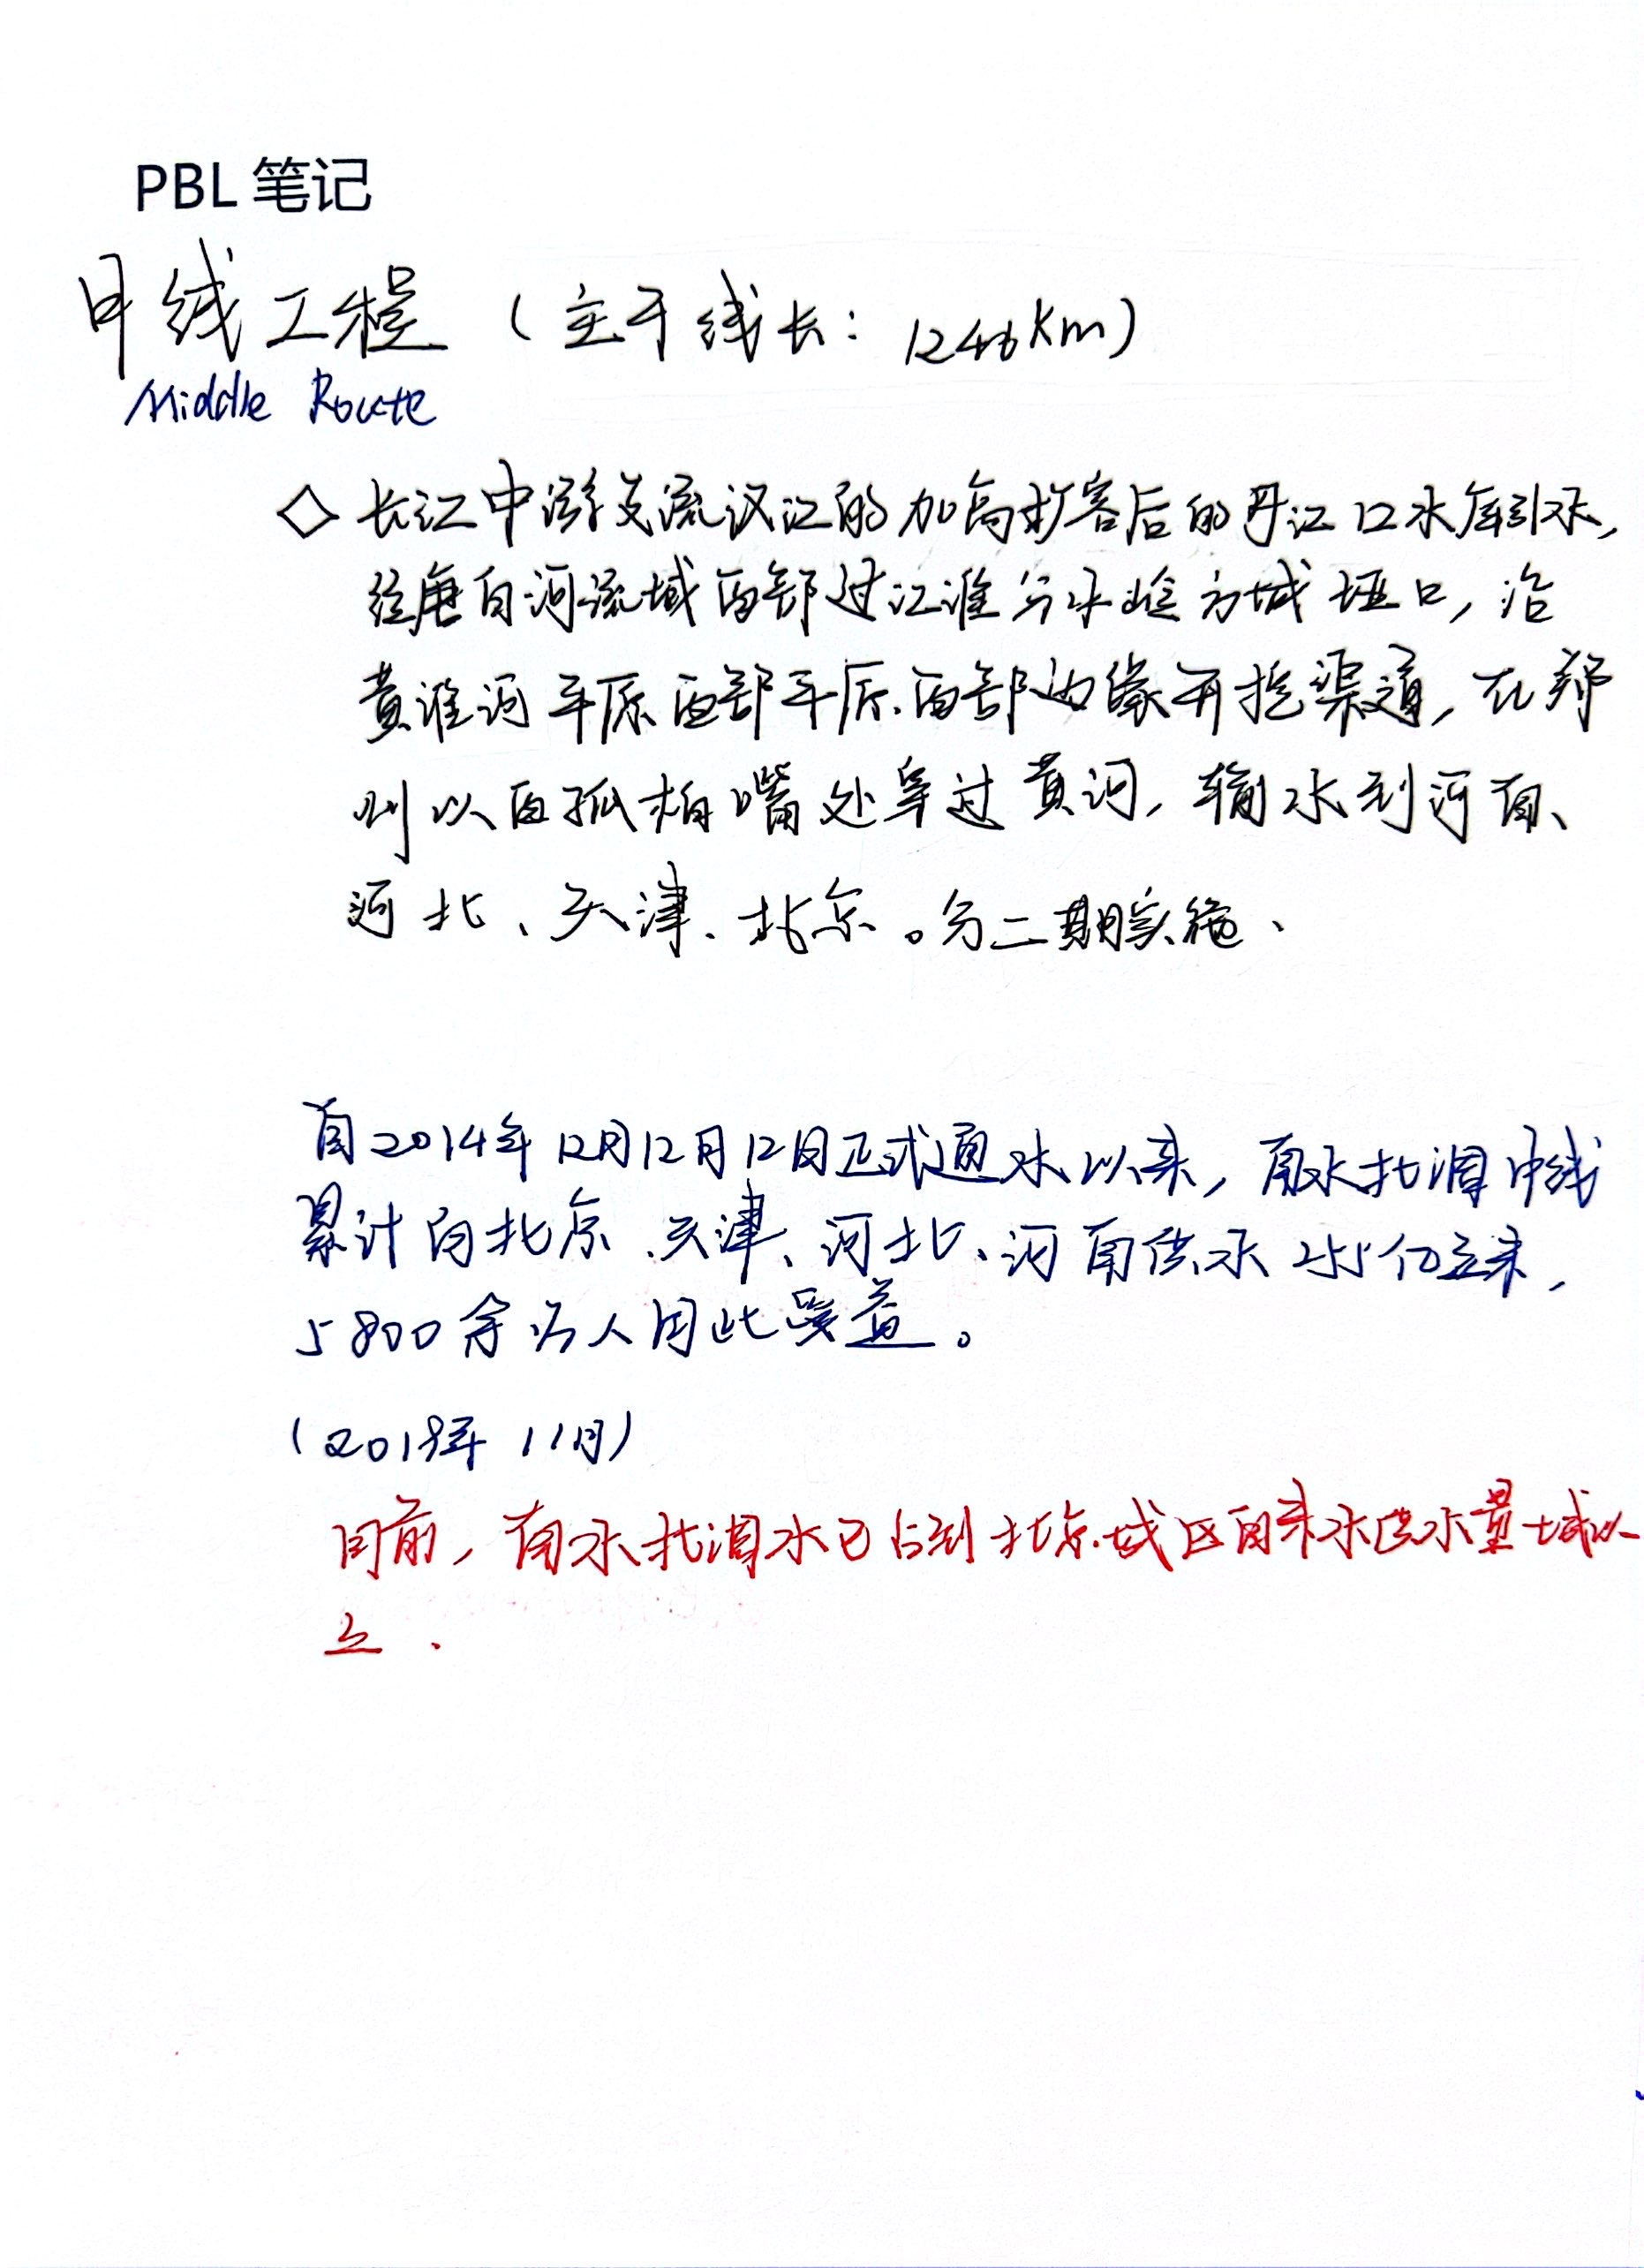 PBL 笔记
中线工程（主干线长：1246Km）
Middle Route
◇ 长江中游支流汉江的加高扩容后的丹江口水库引水，
经唐白河流域西部过江淮分水岭方城垭口，沿
黄淮河平原西部平原西部边缘开挖渠道，在郑
州以西孤柏嘴处穿过黄河，输水到河南、
河北、天津、北京。分二期实施、
自2014年12月12月12日正式通水以来，南水北调中线
累计向北京、天津、河北、河南供水255亿立米，
5800余万人因此受益。
（2019年11月）
目前，南水北调水已占到北京城区自来水供水量七城以
上．